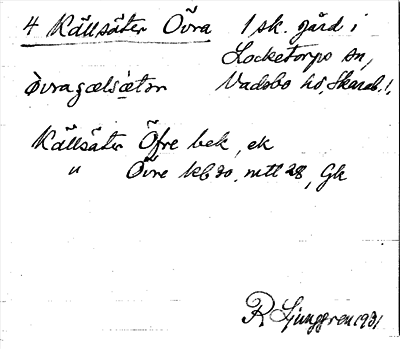 4 Källsäter Övra 1 sk. gård i
Locketorps sn,
òvragælsætǝr Vadsbo hd, Skarab. l.
Källsäter Öfre bek, ek
" Övre kb 20, mtl 28, Gk
R Ljunggren 1931